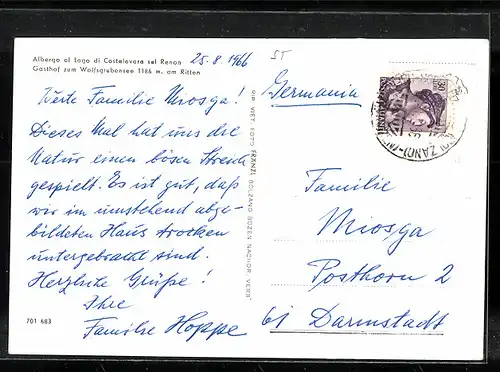 Albergo al Lago di Costalovara sul Renon
Gasthof zum Wolfsgrubensee 1186 m. am Ritten
25.8.1966
ST
Werte Familie Miosga!
Dieses Mal hat uns die
Natur einen bösen Streich
gespielt. Es ist gut, daß
wir im umstehend abge-
bildeten Haus trocken
untergebracht sind.
Herzliche Grüße!
Ihre
Familie Hoppe
701 683
DIR. VIET. FOTO FRÄNZL BOLZANO BOZEN NACHDR. VERB.
Germania
Familie
Miosga
Posthorn 2
61 Darmstadt